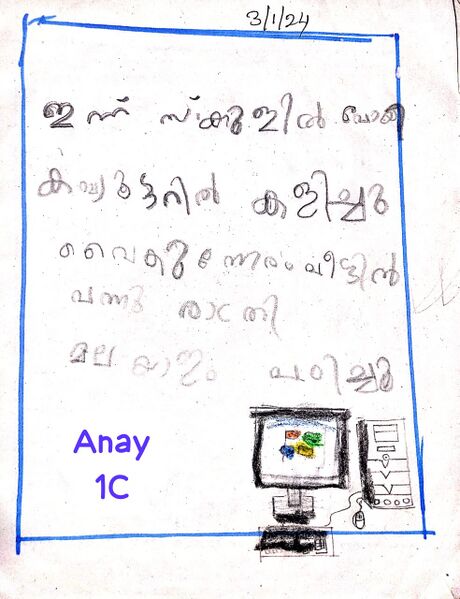 3/1/24
ഇന്ന് സ്ക്കൂളിൽ പോയി
കമ്പ്യൂട്ടറിൽ കളിച്ചു
വൈകുന്നേരം വീട്ടിൽ
വന്നു രാത്രി
മലയാളം പഠിച്ചു
Anay
1C